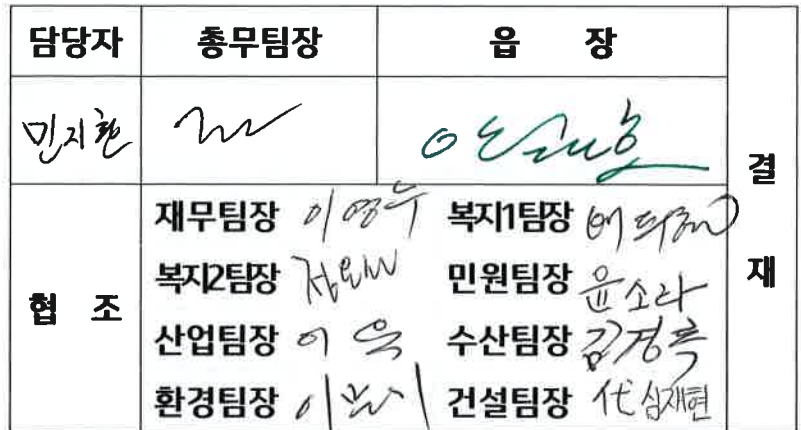 담당자 총무팀장 읍 장
민지현
결재
협 조
재무팀장 이영우 복지1팀장
복지2팀장 민원팀장 윤소라
산업팀장 이욱 수산팀장 김경록
환경팀장 건설팀장 代 심재현